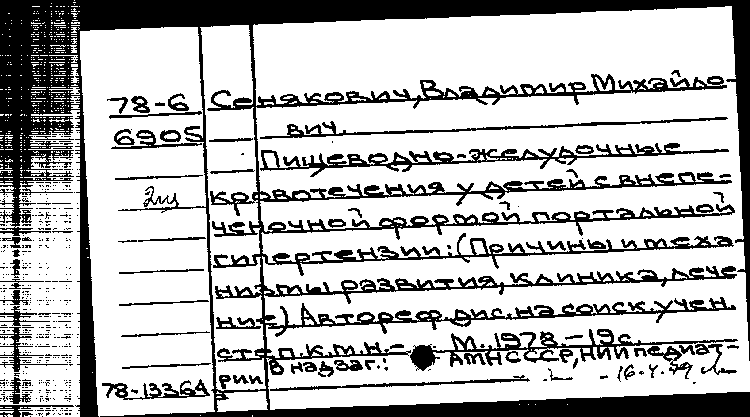 78-6 Сенякович, Владимир Михайло-
6905 вич.
Пищеводно-желудочные
2щ кровотечения у детей с внепе-
ченочной формой портальной
гипертензии: (Причины и меха-
низмы развития, клиника, лече-
ние) Автореф. дис. на соиск. учен.
степ. к.м.н.- М., 1978.-19 с.
В надзаг.: АМН СССР, НИИ педиат-
78-13364 рии